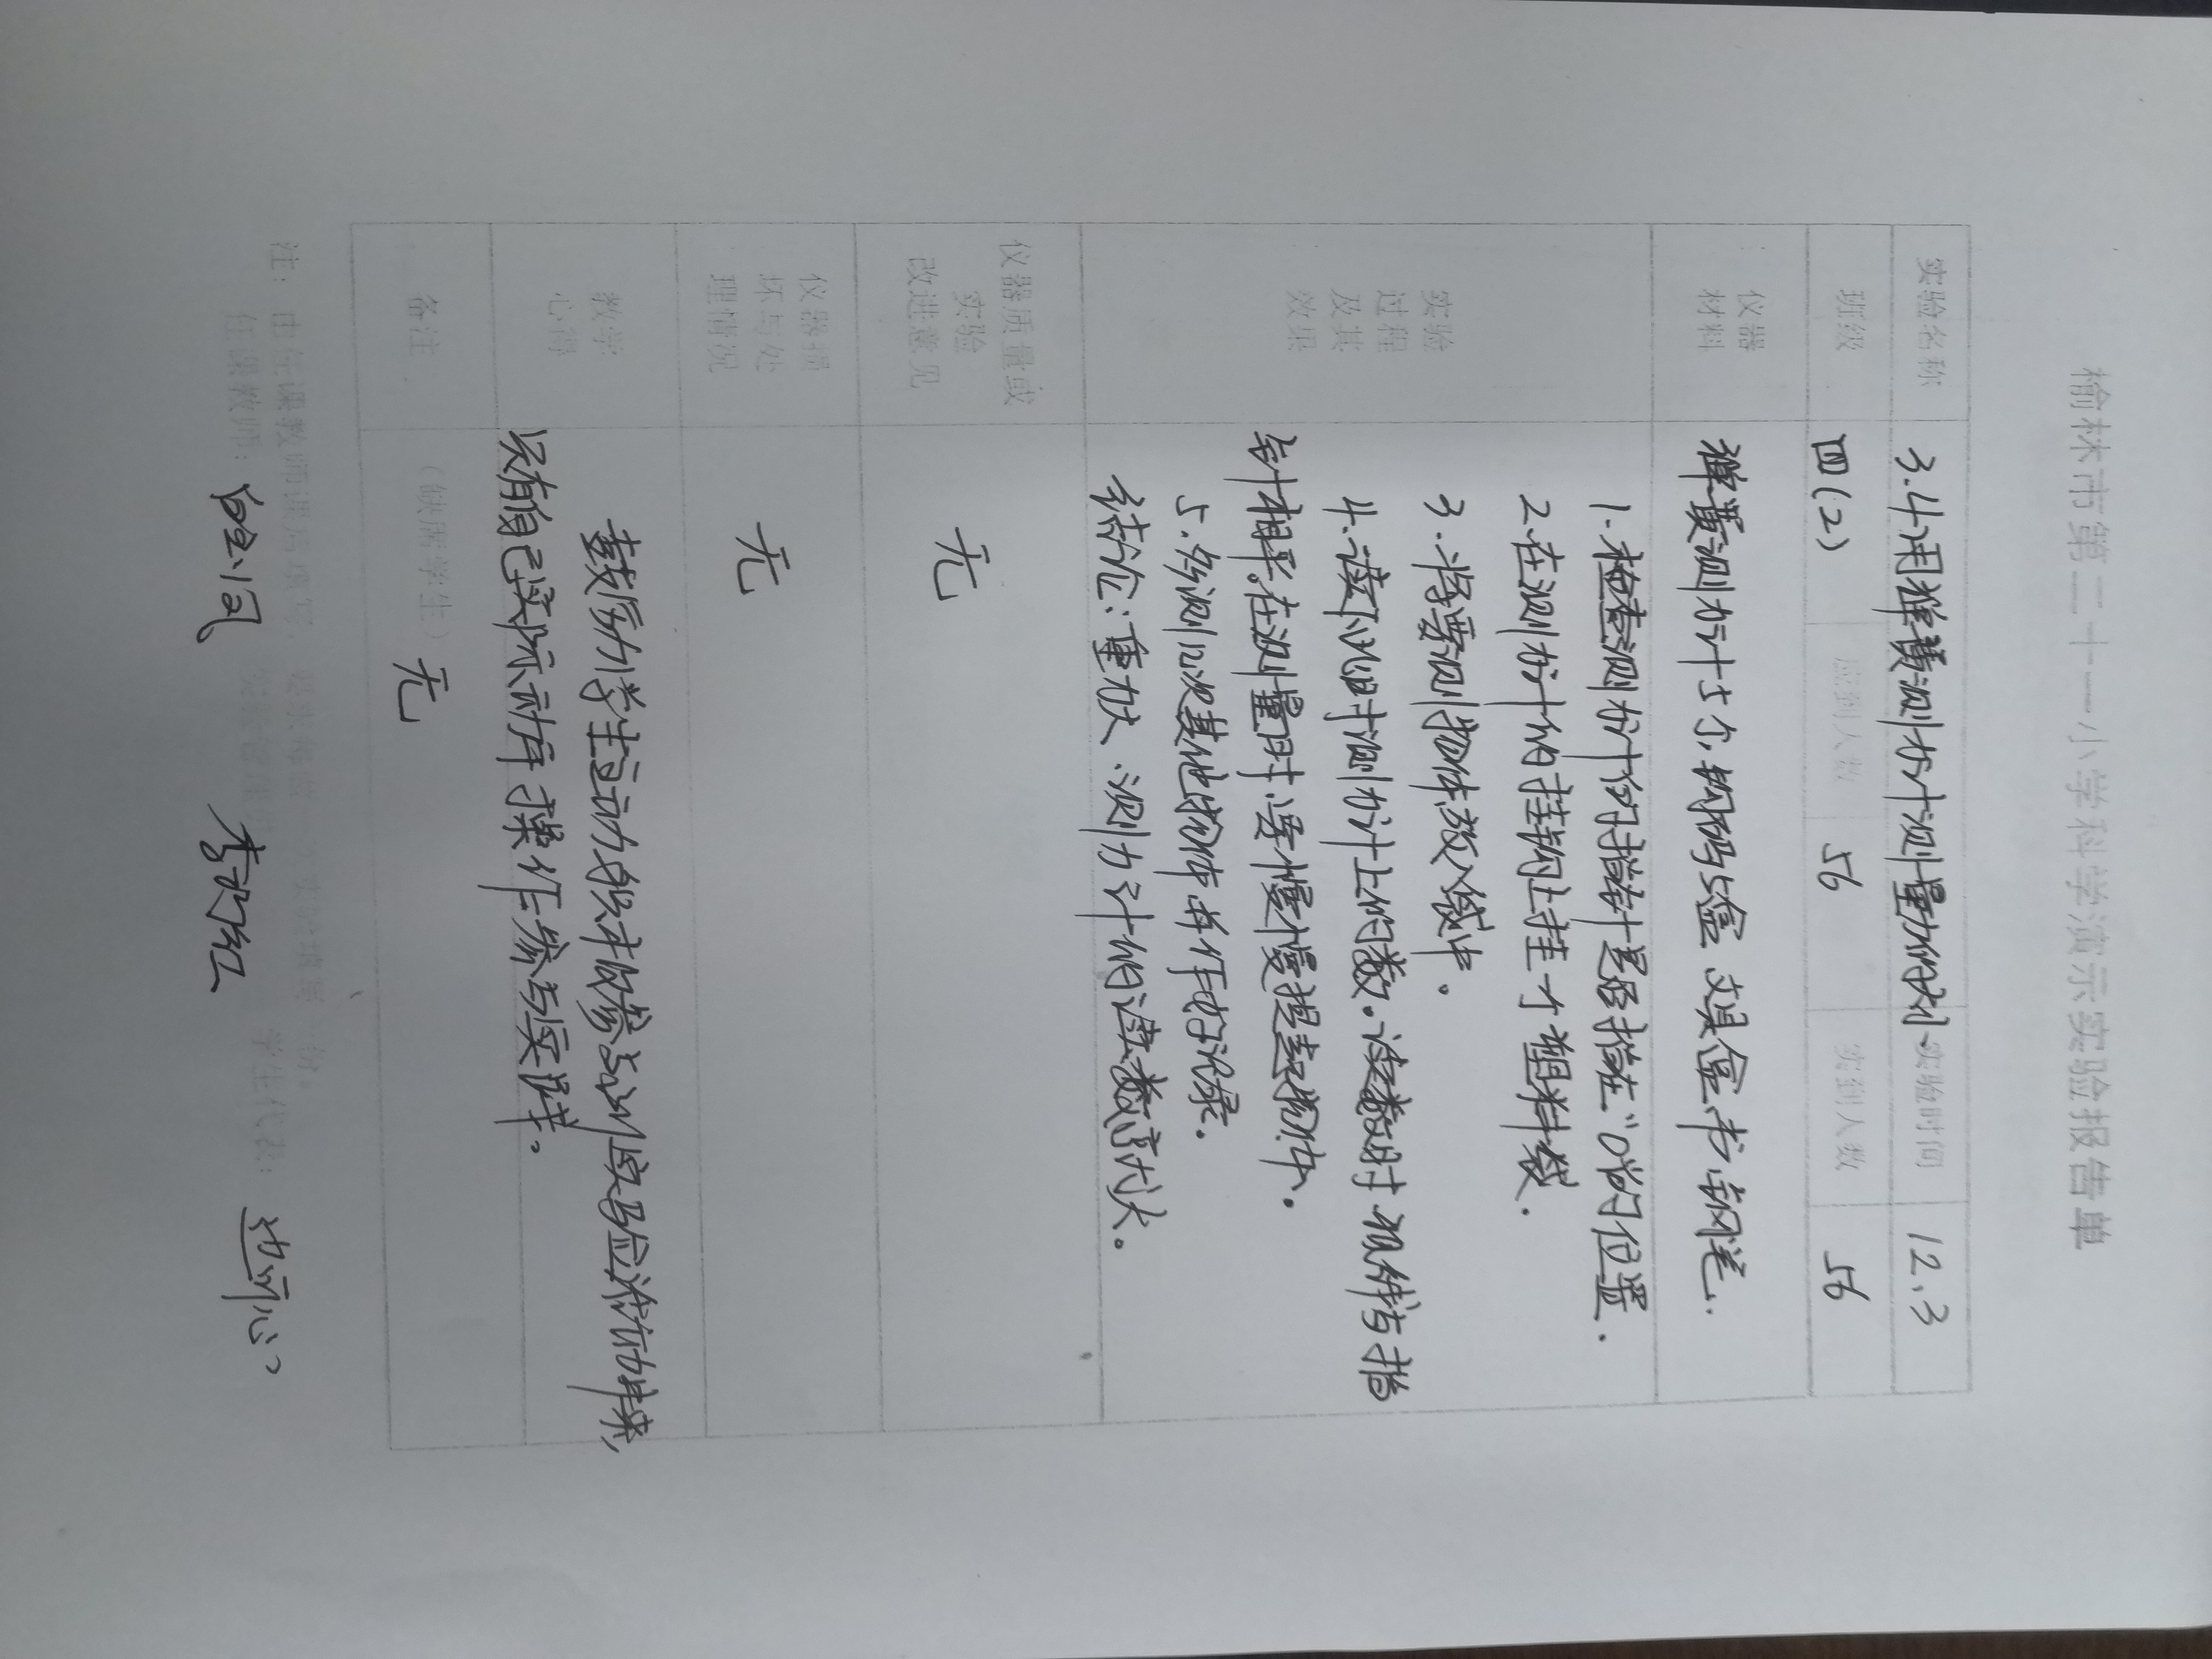 榆林市第二十一小学科学演示实验报告单
实验名称 3.4用弹簧测力计测量力的大小 实验时间 12.3
班级 四(2) 应到人数 56 实到人数 56
仪器材料 弹簧测力计 尺子、钩码 盒 文具盒 书 钢笔...
实验过程及其效果
1.检查测力计的指针是否指在"0"的位置.
2.在测力计的挂钩上挂一个塑料袋.
3.将要测物体放入袋中。
4.读取此时测力计上的数.读数时视线与指
针相平.在测量时,要慢慢提起物体.
5.多测几次其他物体并作好记录.
结论:重力大、测力计的读数高或大。
仪器质量或实验改进意见 无
仪器损坏与处理情况 无
教学心得 鼓励学生主动积极参与到实验活动中来,
只有自己实际动手操作参与实践。
备注 (缺席学生) 无
注:由任课教师课后填写
任课教师: 学生代表: